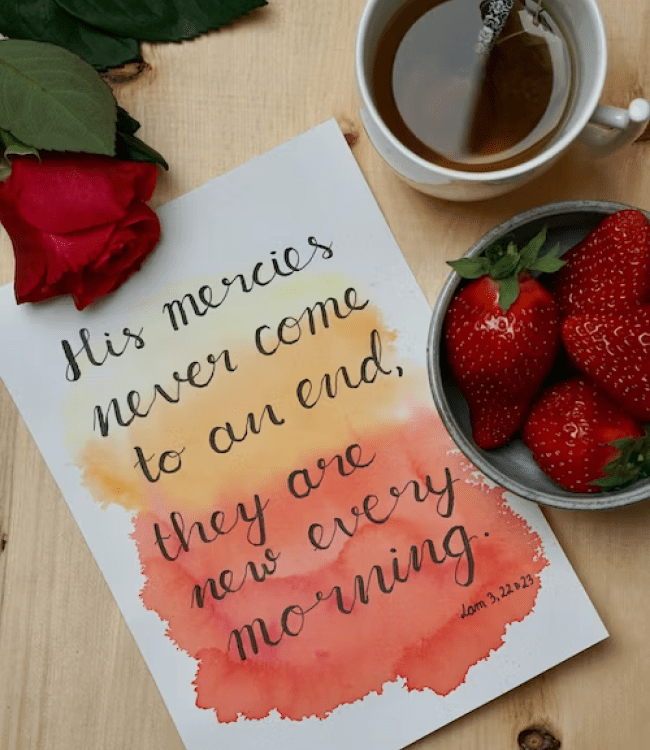 His mercies
never come
to an end,
they are
new every
morning.
Lam 3, 22+23